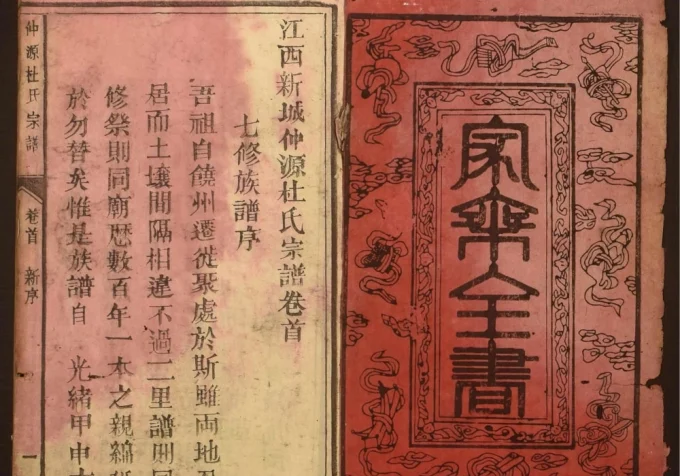 家乘全書
江西新城仲源杜氏宗譜卷首
七修族譜序
吾祖自饒州遷徙聚處於斯雖両地
居而土壤間隔相違不過二里譜則
修祭則同廟歷數百年一本之親綿
於勿替矣惟是族譜自 光緒甲申
仲源杜氏宗譜 卷首 新序 一